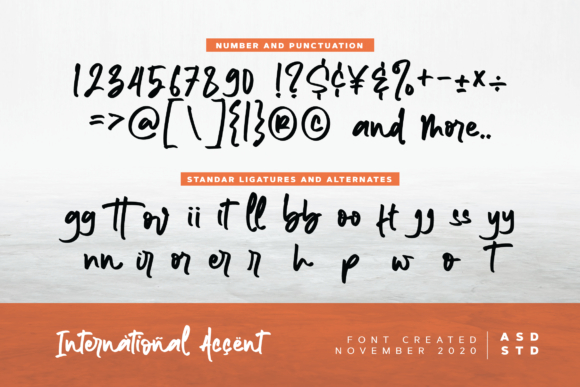 NUMBER AND PUNCTUATION
1234567890 !?$¢¥&%+-±×÷
=>@[\]{|}®© and more..
STANDAR LIGATURES AND ALTERNATES
gg tt ov ii it ll bb oo ft gg ss yy
nn ir or er r h p w o t
Internàtioñal Açcënt
FONT CREATED
NOVEMBER 2020
ASD
STD